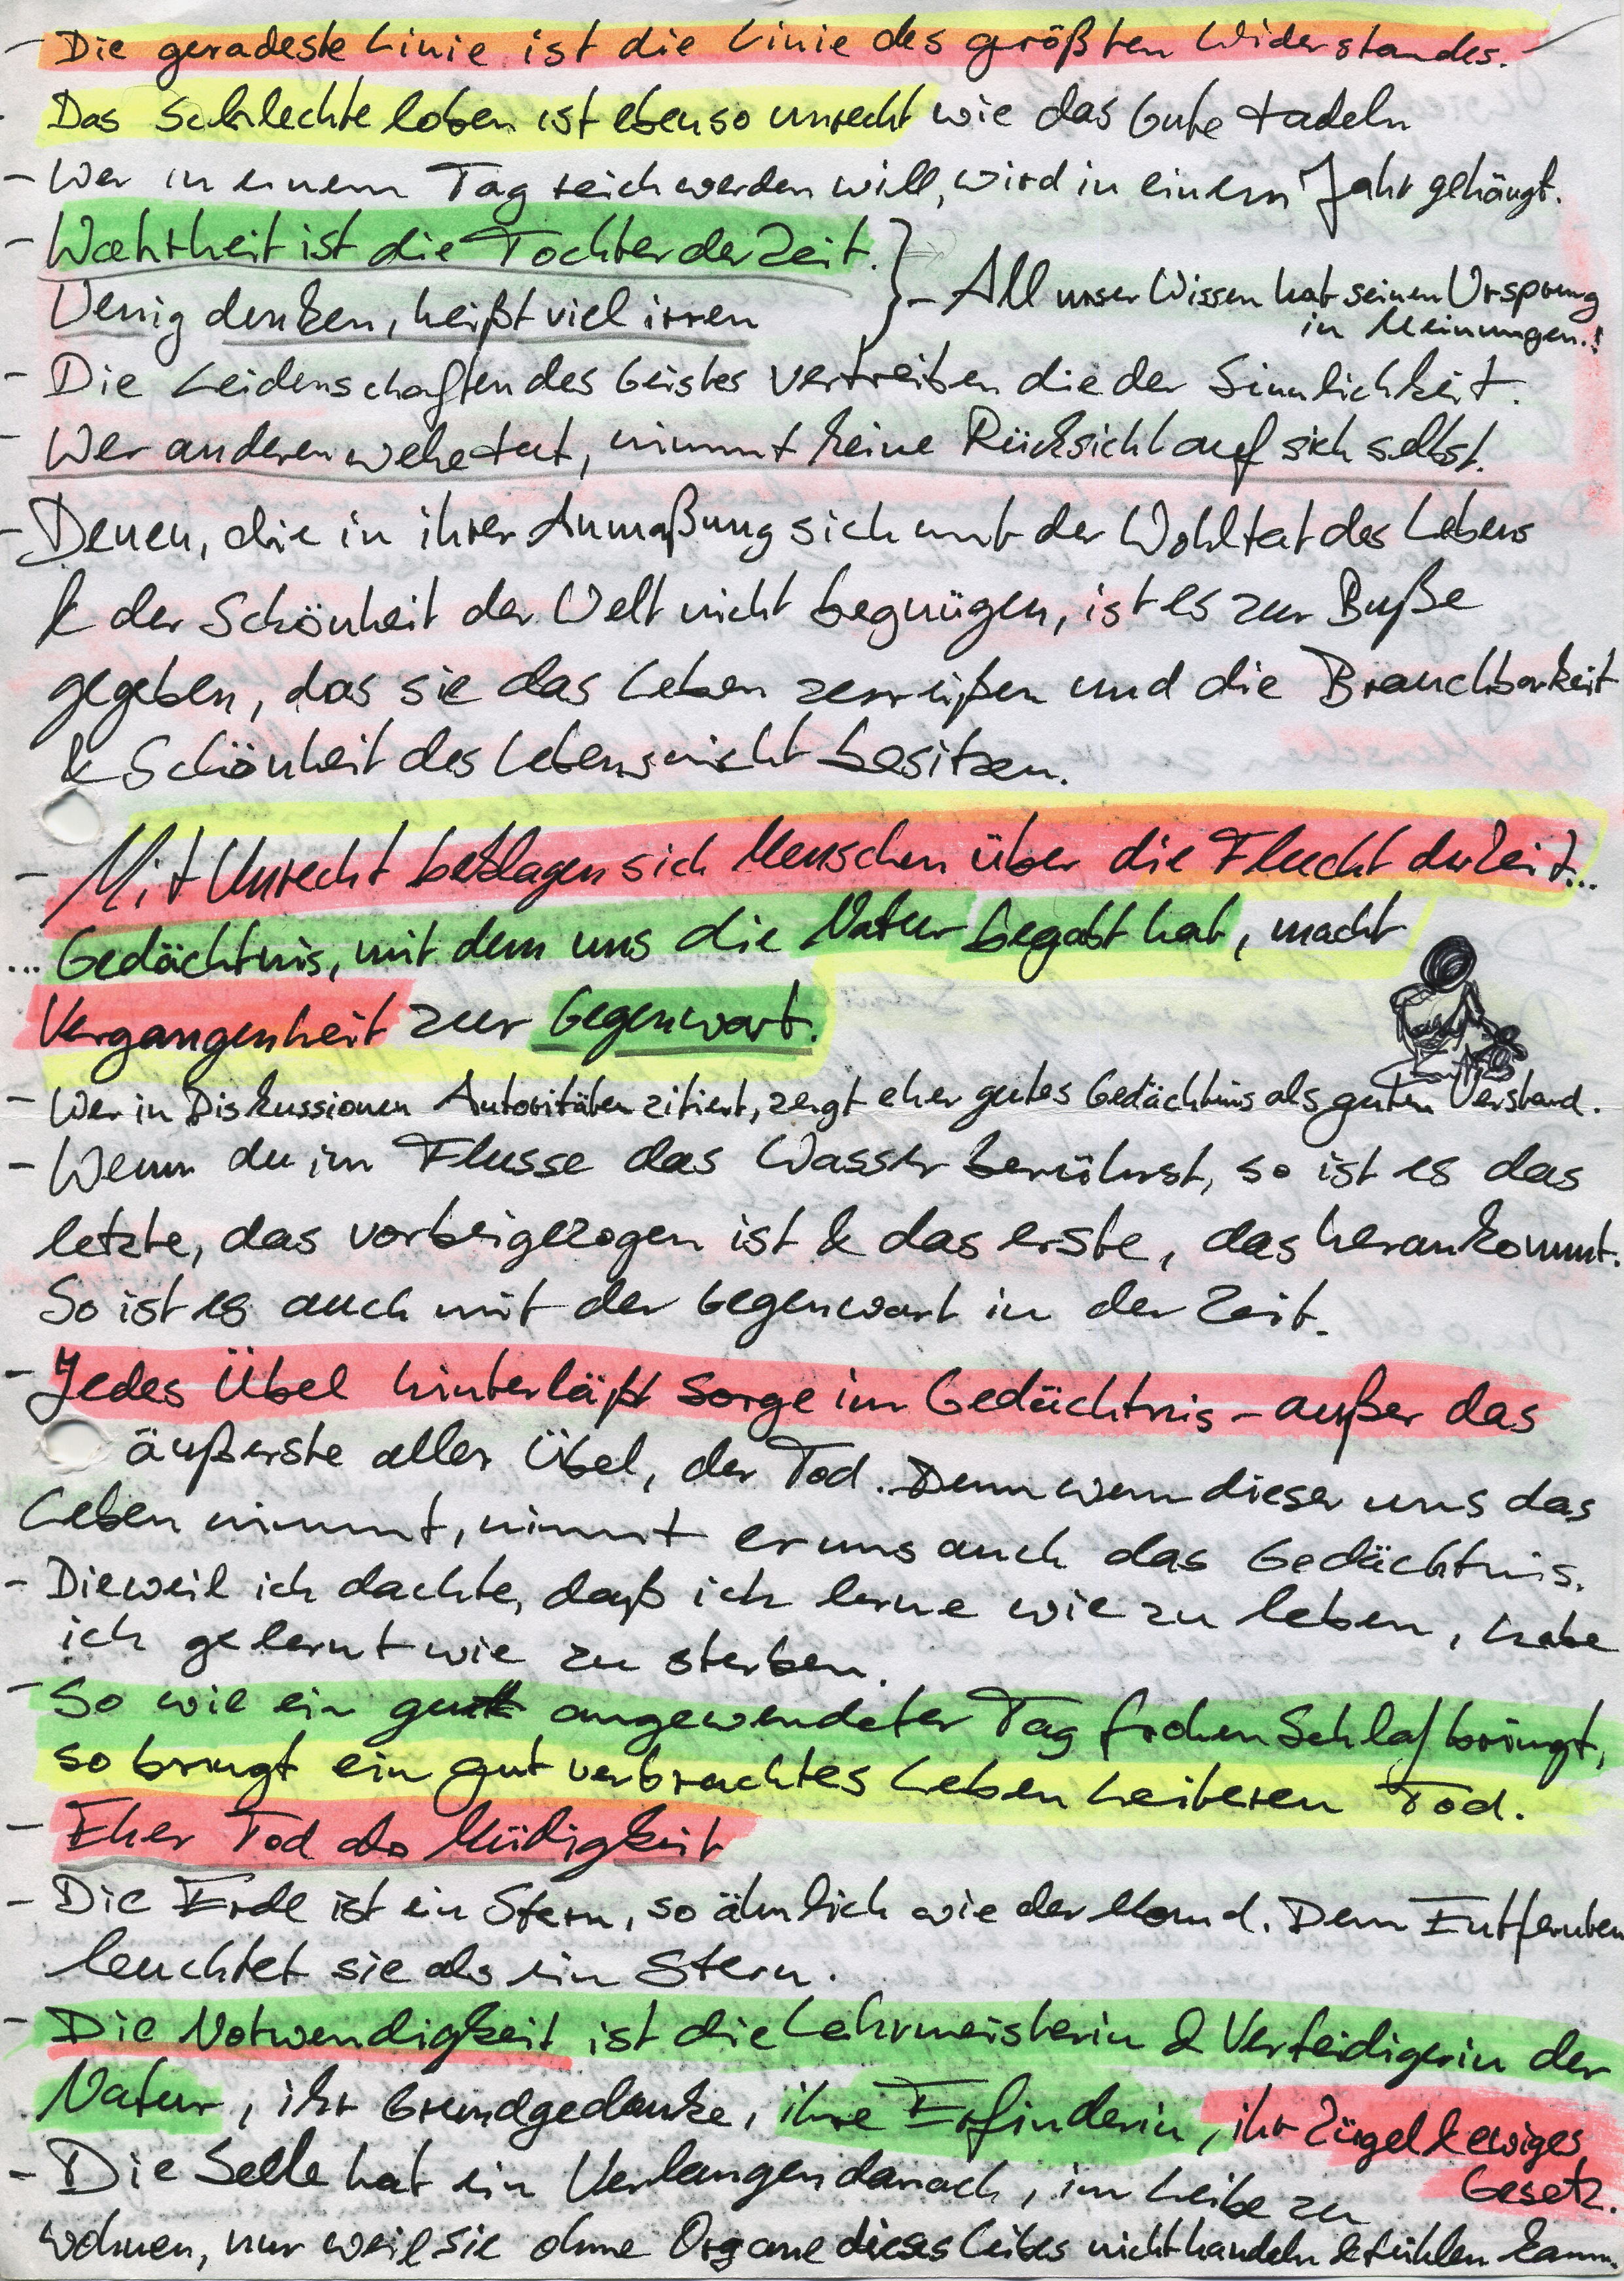 - Die geradeste Linie ist die Linie des größten Widerstandes.
- Das Schlechte loben ist ebenso unrecht wie das Gute tadeln
- Wer in einem Tag reich werden will, wird in einem Jahr gehängt.
- Wahrheit ist die Tochter der Zeit.
Wenig denken, heißt viel irren
} - All unser Wissen hat seinen Ursprung
in Meinungen.!
- Die Leidenschaften des Geistes vertreiben die der Sinnlichkeit.
- Wer anderen wehe tut, nimmt keine Rücksicht auf sich selbst.
- Denen, die in ihrer Anmaßung sich mit der Wohltat des Lebens
& der Schönheit der Welt nicht begnügen, ist es zur Buße
gegeben, das sie das Leben zerreißen und die Brauchbarkeit
& Schönheit des Lebens nicht besitzen.
- Mit Unrecht beklagen sich Menschen über die Flucht der Zeit...
... Gedächtnis, mit dem uns die Natur begabt hat, macht
Vergangenheit zur Gegenwart.
- Wer in Diskussionen Autoritäten zitiert, zeigt eher gutes Gedächtnis als guten Verstand.
- Wenn du im Flusse das Wasser berührst, so ist es das
letzte, das vorbeigezogen ist & das erste, das herankommt.
So ist es auch mit der Gegenwart in der Zeit.
- Jedes Übel hinterläßt Sorge im Gedächtnis - außer das
äußerste aller Übel, der Tod. Denn wenn dieser uns das
Leben nimmt, nimmt er uns auch das Gedächtnis.
- Dieweil ich dachte, daß ich lerne wie zu leben, habe
ich gelernt wie zu sterben.
- So wie ein gut angewendeter Tag frohen Schlaf bringt,
so bringt ein gut verbrachtes Leben heiteren Tod.
- Eher Tod als Müdigkeit
- Die Erde ist ein Stern, so ähnlich wie der Mond. Dem Entfernten
leuchtet sie als ein Stern.
- Die Notwendigkeit ist die Lehrmeisterin & Verteidigerin der
Natur, ihr Grundgedanke, ihre Erfinderin, ihr Zügel & ewiges
Gesetz.
- Die Seele hat ein Verlangen danach, im Leibe zu
wohnen, nur weil sie ohne Organe dieses Leibes nicht handeln & fühlen kann.